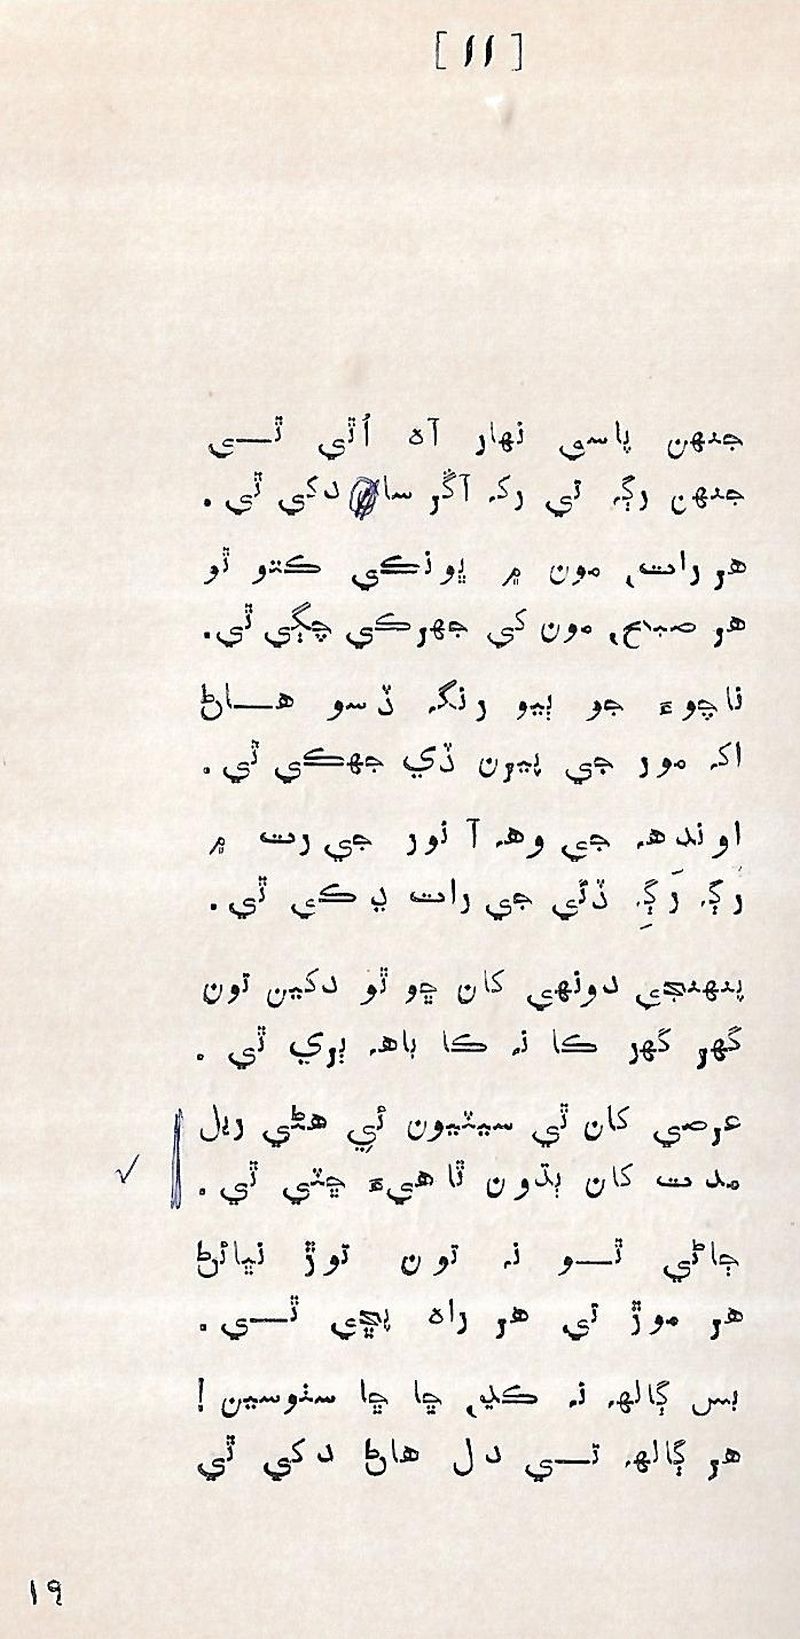 [ 11 ]
جنهن پاسي نهار آه اُٿي ٿــي
جنهن رڳہ تي رکہ آڱر سا دکي ٿي .
هر رات، مون ۾ ڀونڪي ڪتو ٿو
هر صبح، مون کي جهرڪي چڳي ٿي.
ناچوءَ جو ٻيو رنگہ ڏسو هــاڻ
اکہ مور جي پيرن ڏي جهڪي ٿي .
اونده جي وهہ آ نور جي رت ۾
رڳہ رَڳِہ ڏئي جي رات ڍڪي ٿي .
پنهنجي دونهي کان ڇو ٿو دکين تون
گهر گهر ڪا نہ ڪا باهہ ٻري ٿي .
عرصي کان ٿي سيٽيون ئي هڻي ريل
مدت کان ٻڌون ٿا هيءَ ڇٽي ٿي .
ڄاڻي ٿــو نہ تون توڙ نڀائڻ
هر موڙ تي هر راه پڇي ٿــي .
بس ڳالهہ نہ ڪڍ، ڇا ڇا سٺوسين !
هر ڳالهہ تــي دل هاڻ دکي ٿي
١٩